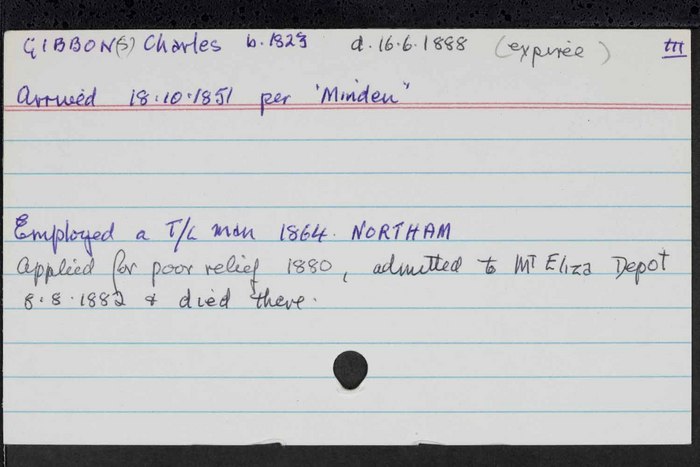 GIBBON(S) Charles b.1823 d.16.6.1888 (expiree) III
Arrived 18.10.1851 per "Minden"
Employed a T/L man 1864. NORTHAM
Applied for poor relief 1880, admitted to Mt Eliza Depot
8.8.1882 & died there.